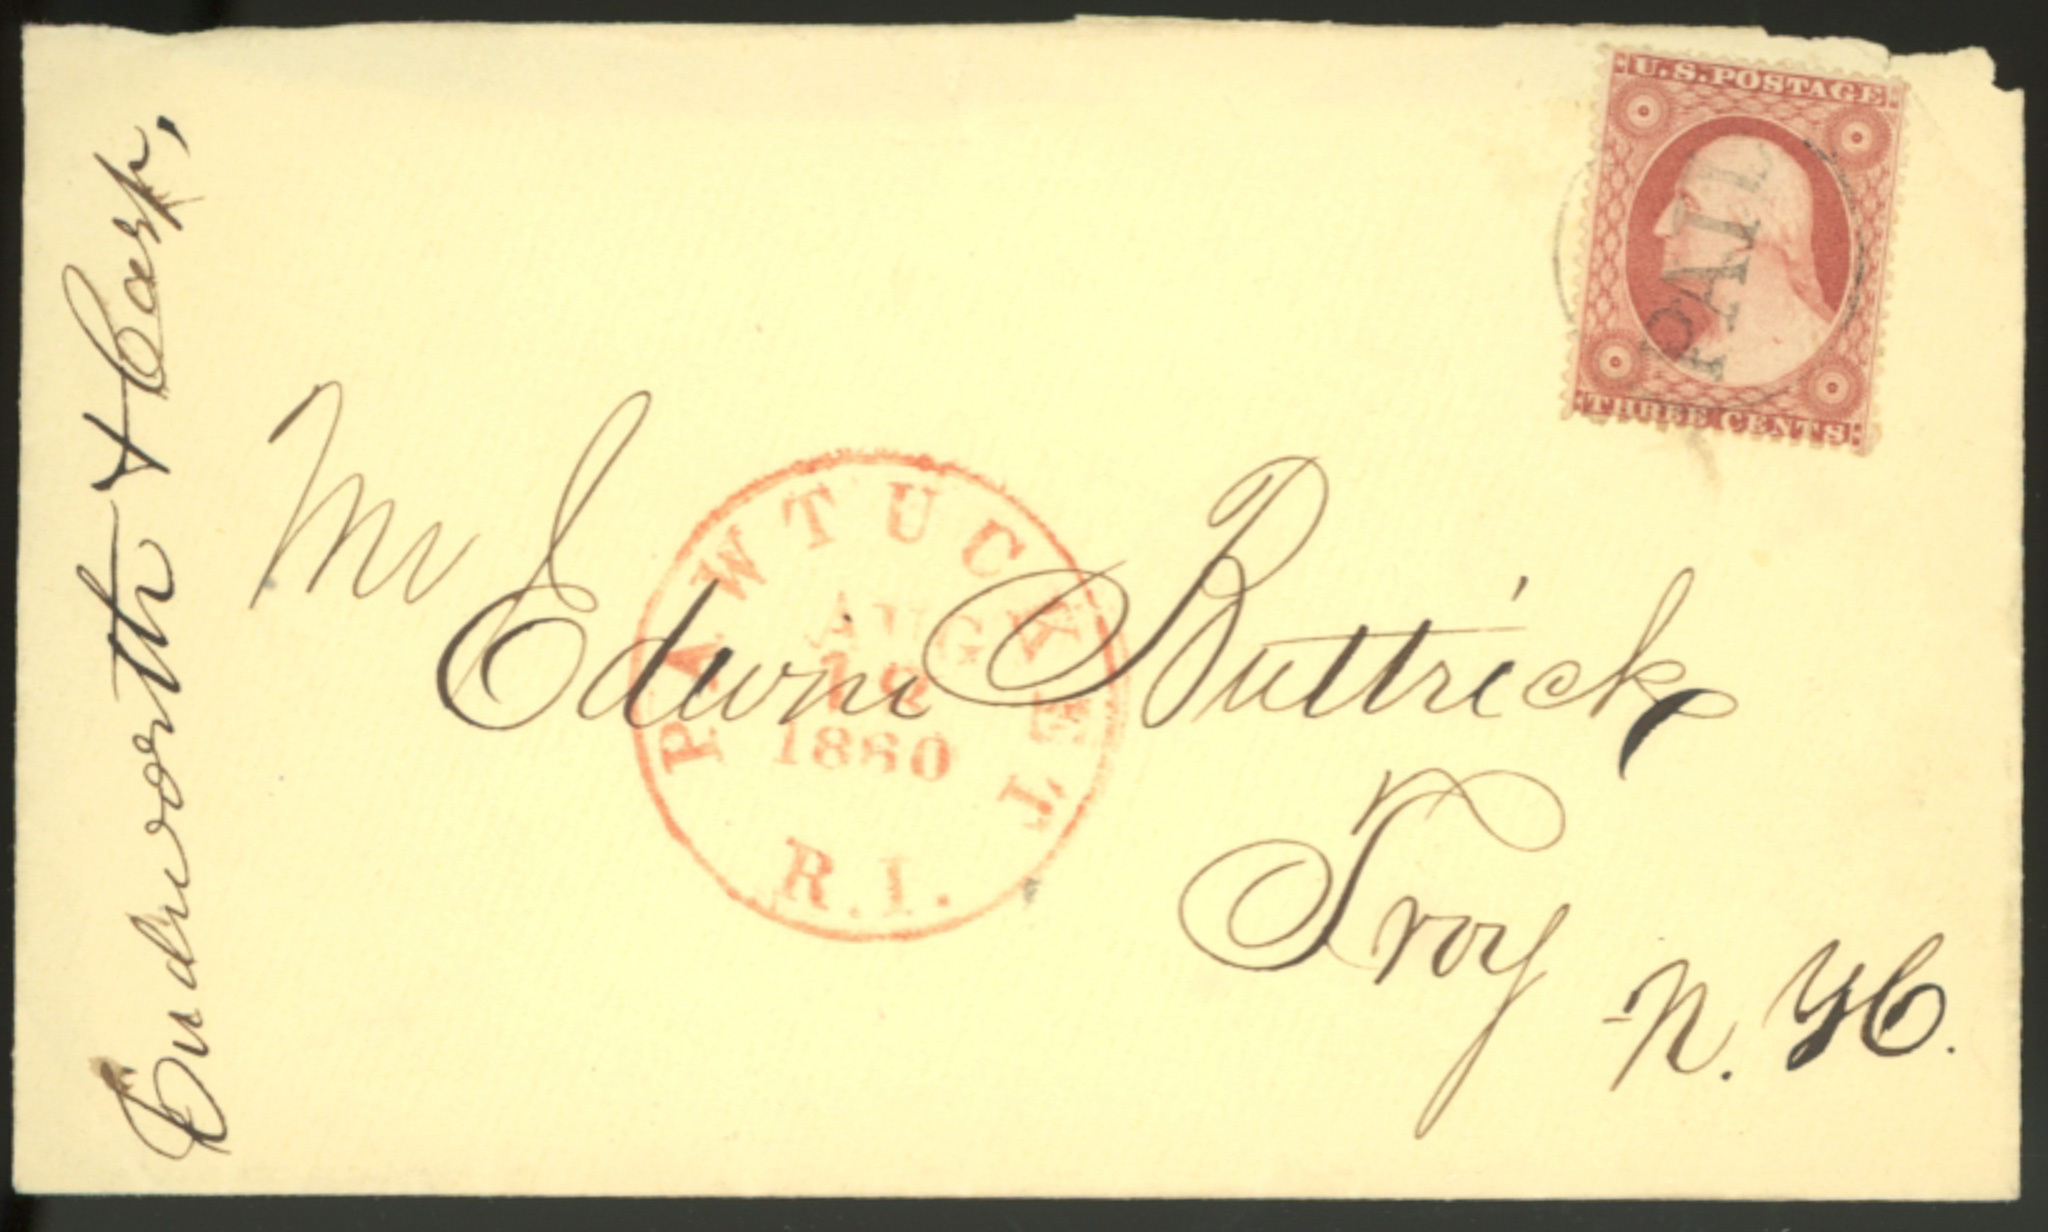 U.S. POSTAGE
PAID
THREE CENTS
Mr Edwin Buttrick
Troy
N. H.
PAWTUCKET
AUG
1860
R.I.
& Carp,